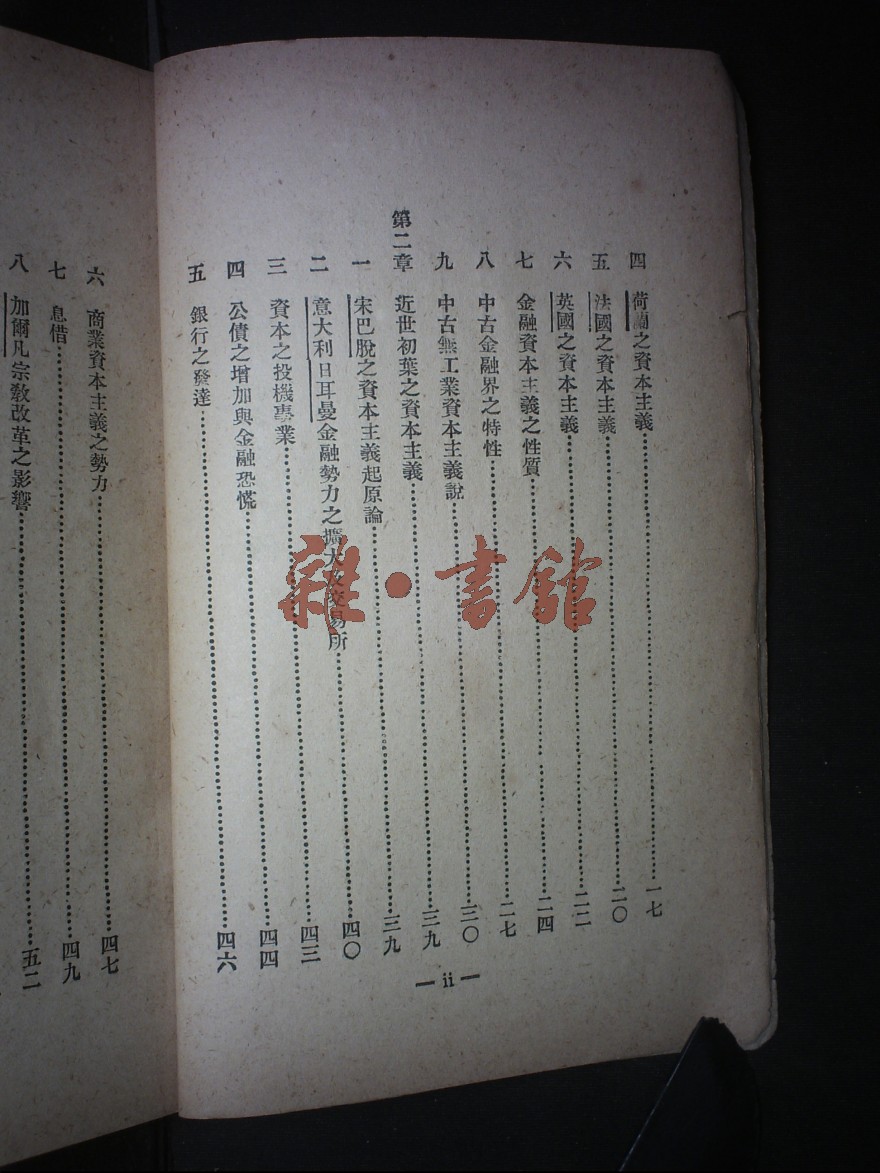 四　荷蘭之資本主義……一七
五　法國之資本主義……二〇
六　英國之資本主義……二二
七　金融資本主義之性質……二四
八　中古金融界之特性……二七
九　中古無工業資本主義說……三〇
第二章　近世初葉之資本主義……三九
一　宋巴脫之資本主義起原論……三九
二　意大利日耳曼金融勢力之擴大及交易所……四〇
三　資本之投機事業……四三
四　公債之增加與金融恐慌……四四
五　銀行之發達……四六
— ii —
六　商業資本主義之勢力……四七
七　息借……四九
八　加爾凡宗教改革之影響……五二
雜·書館